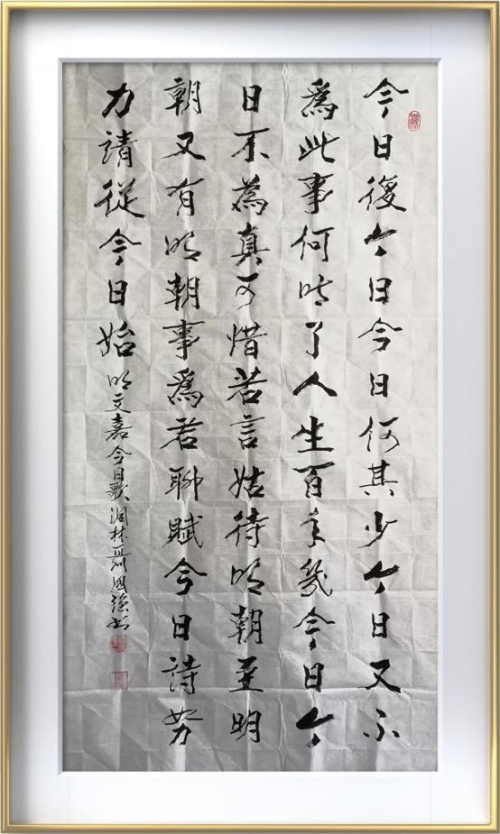 今日復今日今日何其少今日又不
爲此事何时了人生百年幾今日今
日不為真可惜若言姑待明朝至明
朝又有明朝事爲君聊賦今日詩努
力請從今日始
明文嘉今日歌 国强书